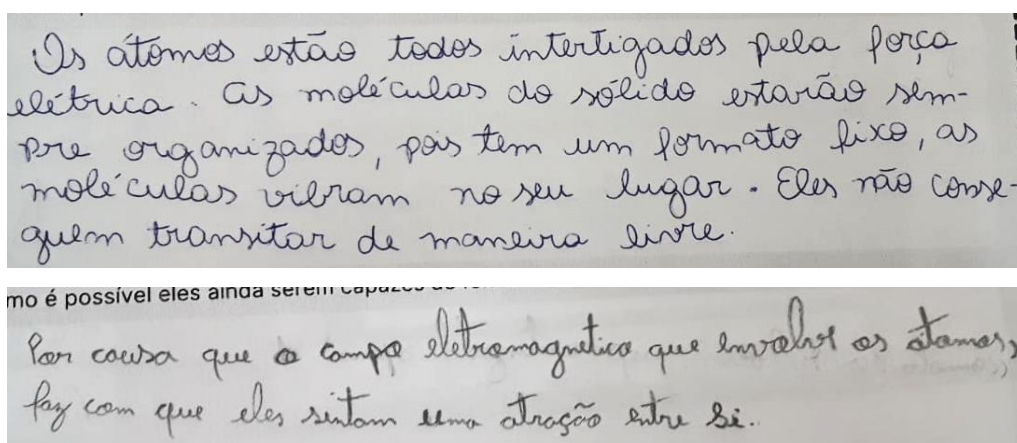 Os átomos estão todos intertigados pela força
elétrica. As moléculas do sólido estarão sem-
pre organizados, pois tem um formato fixo, as
moléculas vibram no seu lugar. Eles não conse-
guem transitar de maneira livre.
mo é possível eles ainda serem capazes
Por causa que o campo eletromagnetico que envolve os átomos,
faz com que eles sintam uma atração entre si.